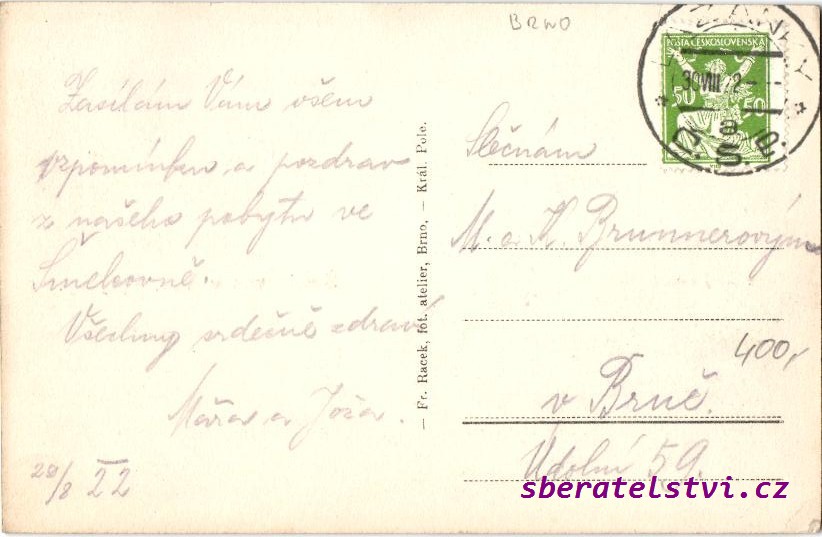 BRNO
Zasílám Vám všem
vzpomínku a pozdrav
z našeho pobytu ve
Všechny srdečně zdraví
Mářa a Joža.
29/8 22
— Fr. Racek, fot. atelier, Brno, — Král. Pole.
POŠTA ČESKOSLOVENSKÁ
50 50
30 VIII 22
ČŠ
a
Slečnám
M. a K. Brunnerovým
400,-
v Brně.
Údolní 59.
sberatelstvi.cz